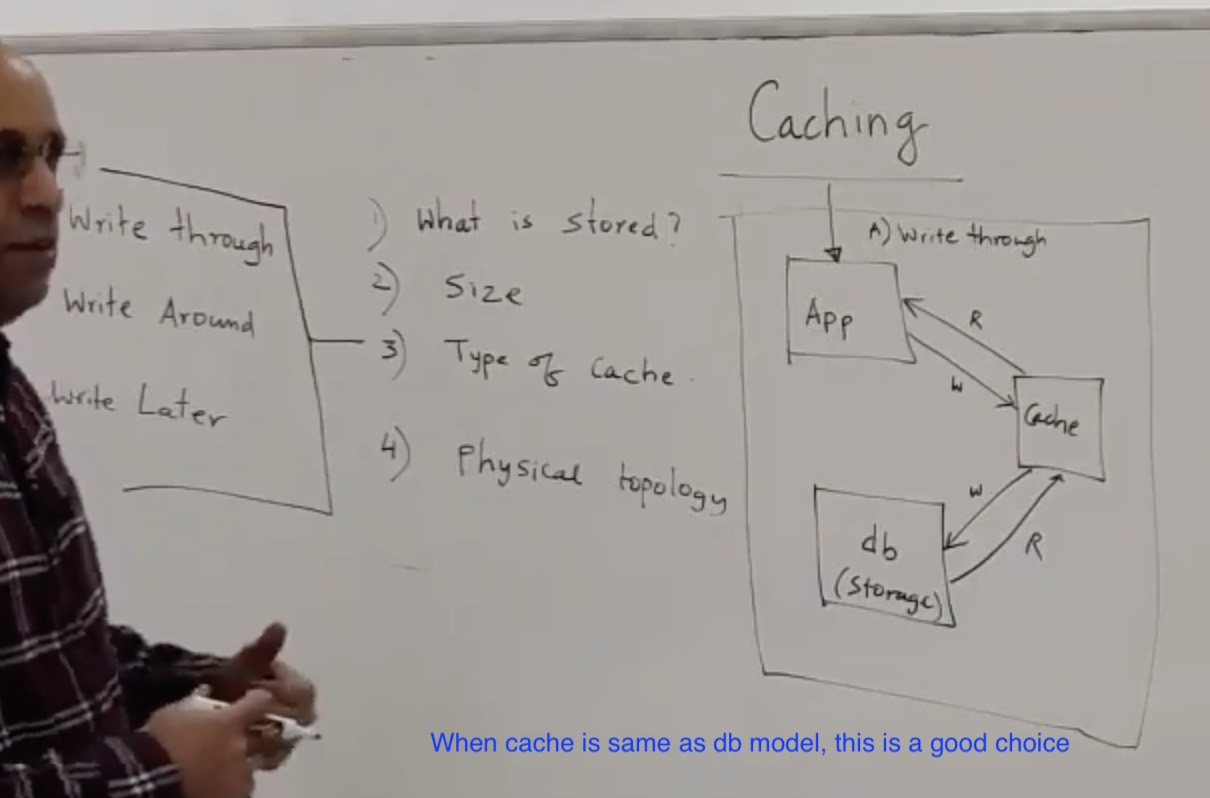 Caching
Write through
Write Around
Write Later
1) What is stored?
2) Size
3) Type of Cache.
4) Physical topology
A) Write through
App
R
W
Cache
W
R
db
(Storage)
When cache is same as db model, this is a good choice